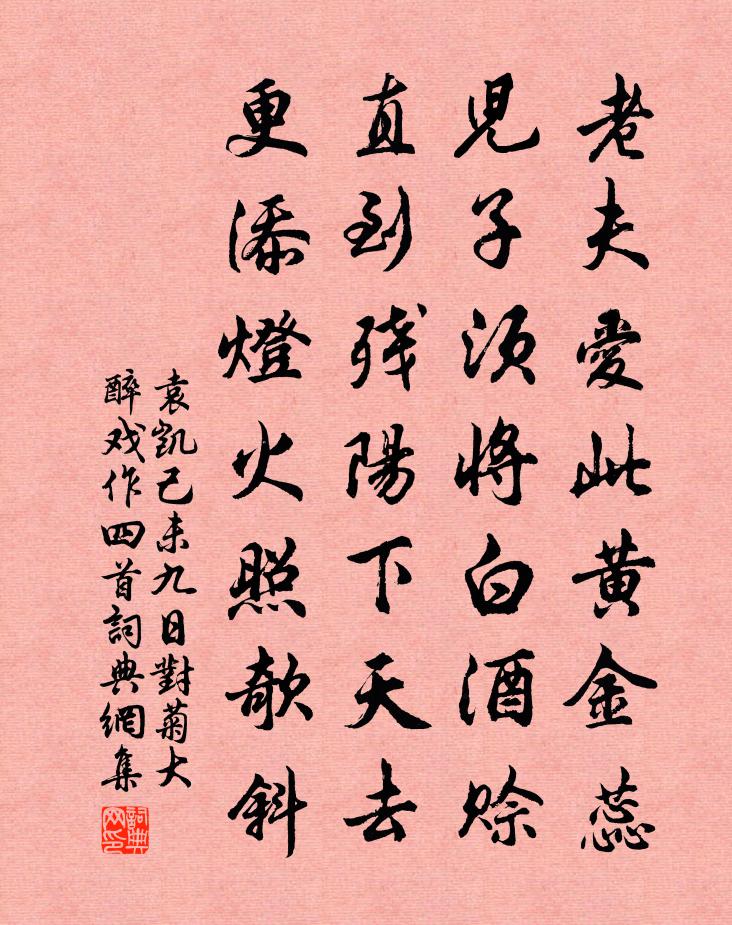 老夫愛此黃金蕊
兒子須將白酒賒
直到殘陽下天去
更添燈火照欹斜
袁凱己未九日對菊大
醉戏作四首詞典網集
詞典网印